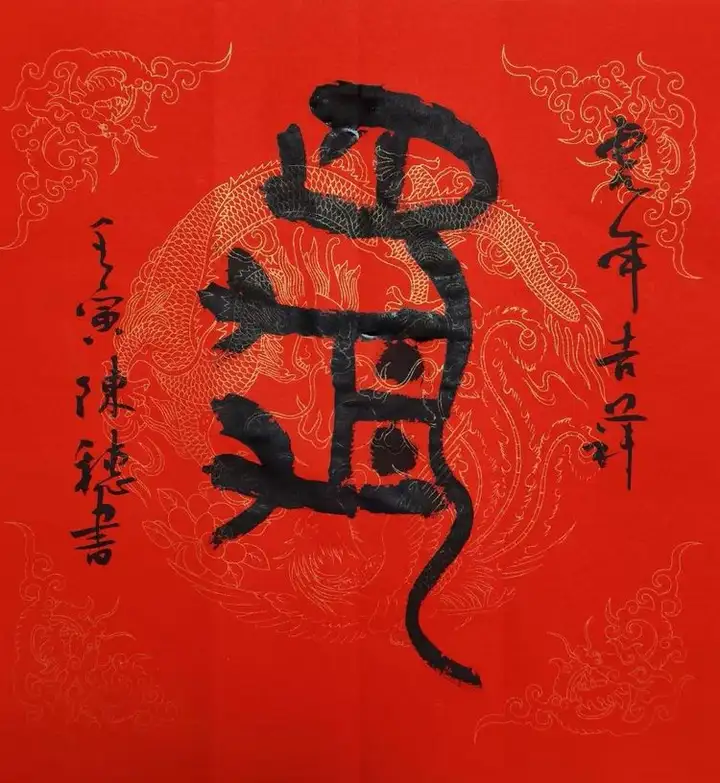 虎
虎年吉祥
壬寅陳穗書